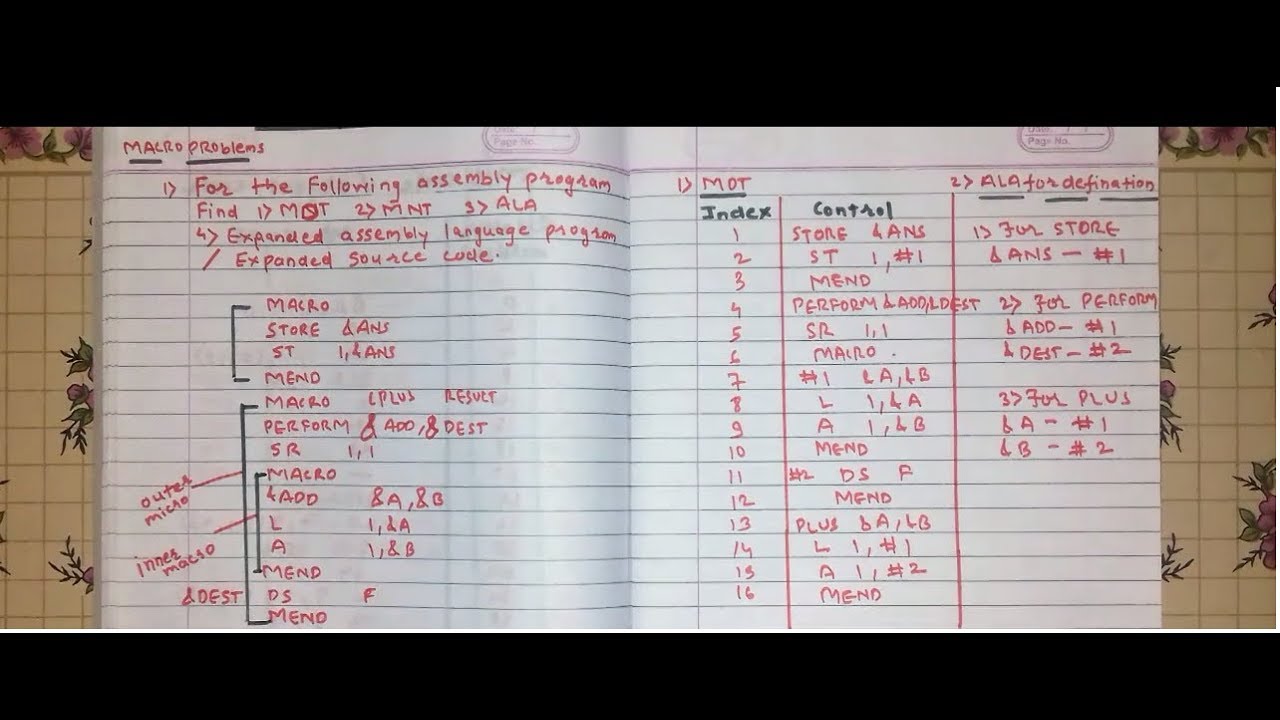 Date: / /
Page No.
MACRO PROBLEMS
1) For the Following assembly program
Find 1) MDT 2) MNT 3) ALA
4) Expanded assembly language program
/ Expanded source code.
MACRO
STORE &ANS
ST 1,&ANS
MEND
MACRO (PLUS RESULT
PERFORM &ADD,&DEST
SR 1,1
MACRO
&ADD &A,&B
L 1,&A
A 1,&B
MEND
&DEST DS F
MEND
outer
micro
inner
macro
Date: / /
Page No.
1) MDT 2) ALA for defination
Index Control
1 STORE &ANS 1) For STORE
2 ST 1,#1 & ANS - #1
3 MEND
4 PERFORM &ADD,&DEST 2) For PERFORM
5 SR 1,1 & ADD - #1
6 MACRO. & DEST - #2
7 #1 &A,&B
8 L 1,&A 3) For PLUS
9 A 1,&B & A - #1
10 MEND & B - #2
11 #2 DS F
12 MEND
13 PLUS &A,&B
14 L 1,#1
15 A 1,#2
16 MEND